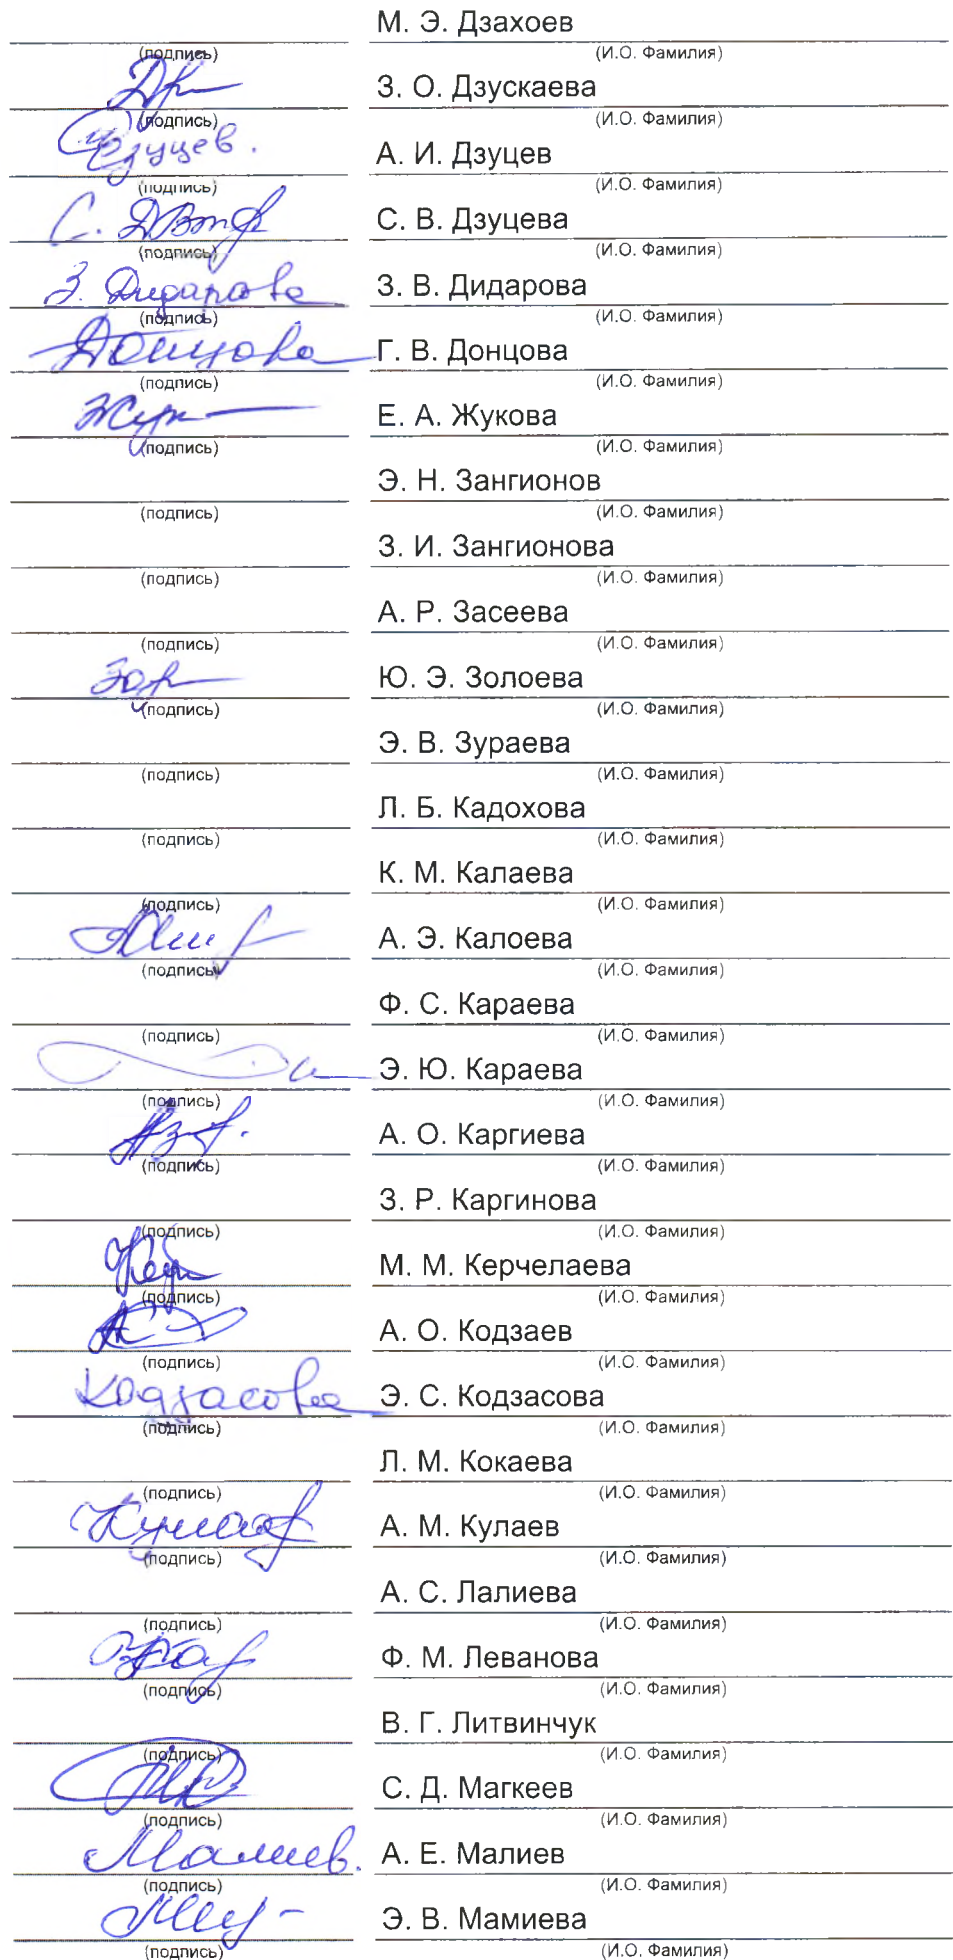 М. Э. Дзахоев
(подпись) (И.О. Фамилия)
З. О. Дзускаева
(подпись) (И.О. Фамилия)
Дзуцев. А. И. Дзуцев
(подпись) (И.О. Фамилия)
С. В. Дзуцева
(подпись) (И.О. Фамилия)
З. Дидарова З. В. Дидарова
(подпись) (И.О. Фамилия)
Донцова Г. В. Донцова
(подпись) (И.О. Фамилия)
Е. А. Жукова
(подпись) (И.О. Фамилия)
Э. Н. Зангионов
(подпись) (И.О. Фамилия)
З. И. Зангионова
(подпись) (И.О. Фамилия)
А. Р. Засеева
(подпись) (И.О. Фамилия)
Ю. Э. Золоева
(подпись) (И.О. Фамилия)
Э. В. Зураева
(подпись) (И.О. Фамилия)
Л. Б. Кадохова
(подпись) (И.О. Фамилия)
К. М. Калаева
(подпись) (И.О. Фамилия)
А. Э. Калоева
(подпись) (И.О. Фамилия)
Ф. С. Караева
(подпись) (И.О. Фамилия)
Э. Ю. Караева
(подпись) (И.О. Фамилия)
А. О. Каргиева
(подпись) (И.О. Фамилия)
З. Р. Каргинова
(подпись) (И.О. Фамилия)
М. М. Керчелаева
(подпись) (И.О. Фамилия)
А. О. Кодзаев
(подпись) (И.О. Фамилия)
Кодзасова Э. С. Кодзасова
(подпись) (И.О. Фамилия)
Л. М. Кокаева
(подпись) (И.О. Фамилия)
А. М. Кулаев
(подпись) (И.О. Фамилия)
А. С. Лалиева
(подпись) (И.О. Фамилия)
Ф. М. Леванова
(подпись) (И.О. Фамилия)
В. Г. Литвинчук
(подпись) (И.О. Фамилия)
С. Д. Магкеев
(подпись) (И.О. Фамилия)
Малиев. А. Е. Малиев
(подпись) (И.О. Фамилия)
Э. В. Мамиева
(подпись) (И.О. Фамилия)